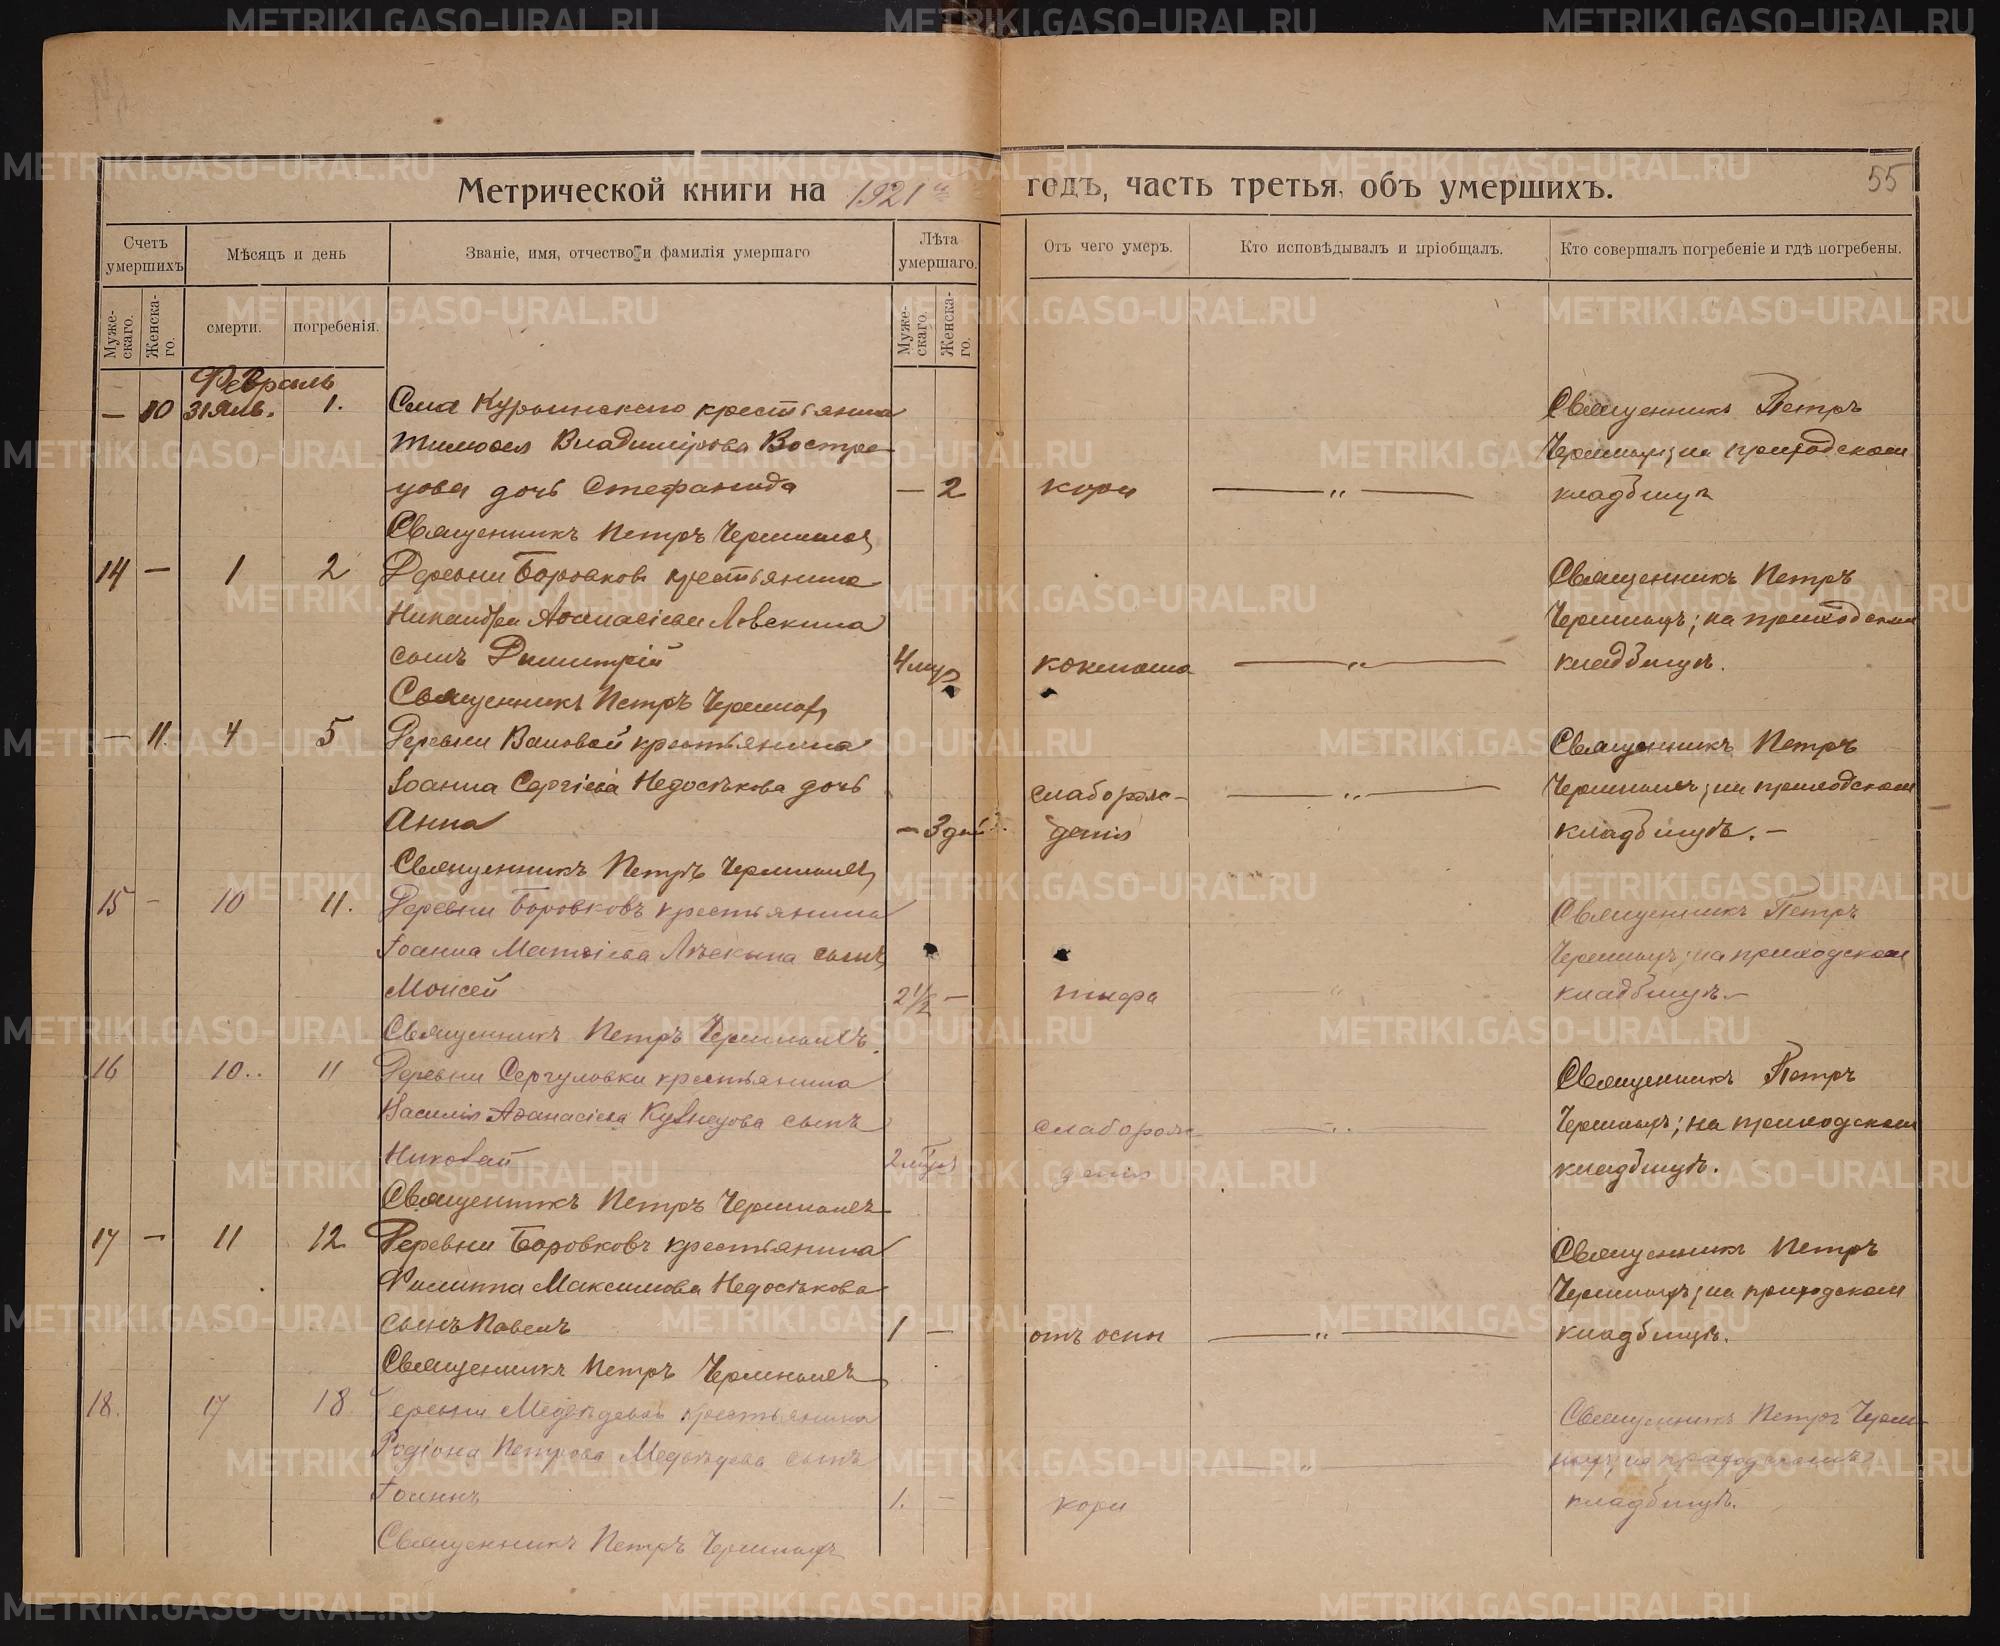 Метрической книги на 1921 й годъ, часть третья, объ умершихъ.
55
Счетъ умершихъ
Мѣсяцъ и день
Званіе, имя, отчество и фамилія умершаго
Лѣта умершаго.
Отъ чего умеръ.
Кто исповѣдывалъ и пріобщалъ.
Кто совершалъ погребеніе и гдѣ погребены.
Муже-скаго.
Женска-го.
смерти.
погребенія.
Муже-скаго.
Женска-го.
Февраль
— 10 31 Янв. 1. Села Курьинскаго крестьянина
Тимоѳея Владимірова Востре-
цова дочь Стефанида — 2 кори — " —
Священникъ Петръ
на приходскомъ
кладбищѣ
Священникъ Петръ
14 — 1 2 Деревни Боровковъ крестьянина
Никандра Аѳанасіева Лѣвкина
сынъ Димитрій 4 мѣс. коклюша — " —
Священникъ Петръ
на приходскомъ
кладбищѣ.
Священникъ Петръ
— 11. 4 5 Деревни крестьянина
Іоанна Сергіева Недосѣкова дочь
Анна — 3 дней слаборож-
денія — " —
Священникъ Петръ
на приходскомъ
кладбищѣ. —
Священникъ Петръ
15 — 10 11. Деревни Боровковъ крестьянина
Іоанна Матѳіева сынъ
Моисей 2 1/2 — тифа — " —
Священникъ Петръ
на приходскомъ
кладбищѣ. —
Священникъ Петръ
16 10.. 11 Деревни Сергуловки крестьянина
Василія Аѳанасіева Кузнецова сынъ
Николай слаборож-
денія — " —
Священникъ Петръ
на приходскомъ
кладбищѣ.
Священникъ Петръ
17 — 11 12 Деревни Боровковъ крестьянина
Филиппа Максимова Недосѣкова
сынъ Павелъ 1 — отъ оспы — " —
Священникъ Петръ
на приходскомъ
кладбищѣ.
Священникъ Петръ
18. 17 18 Деревни Медвѣдевой крестьянина
Родіона Петрова Медвѣдева сынъ
Іоаннъ 1. — кори — " —
Священникъ Петръ
на приходскомъ
кладбищѣ.
Священникъ Петръ
METRIKI.GASO-URAL.RU